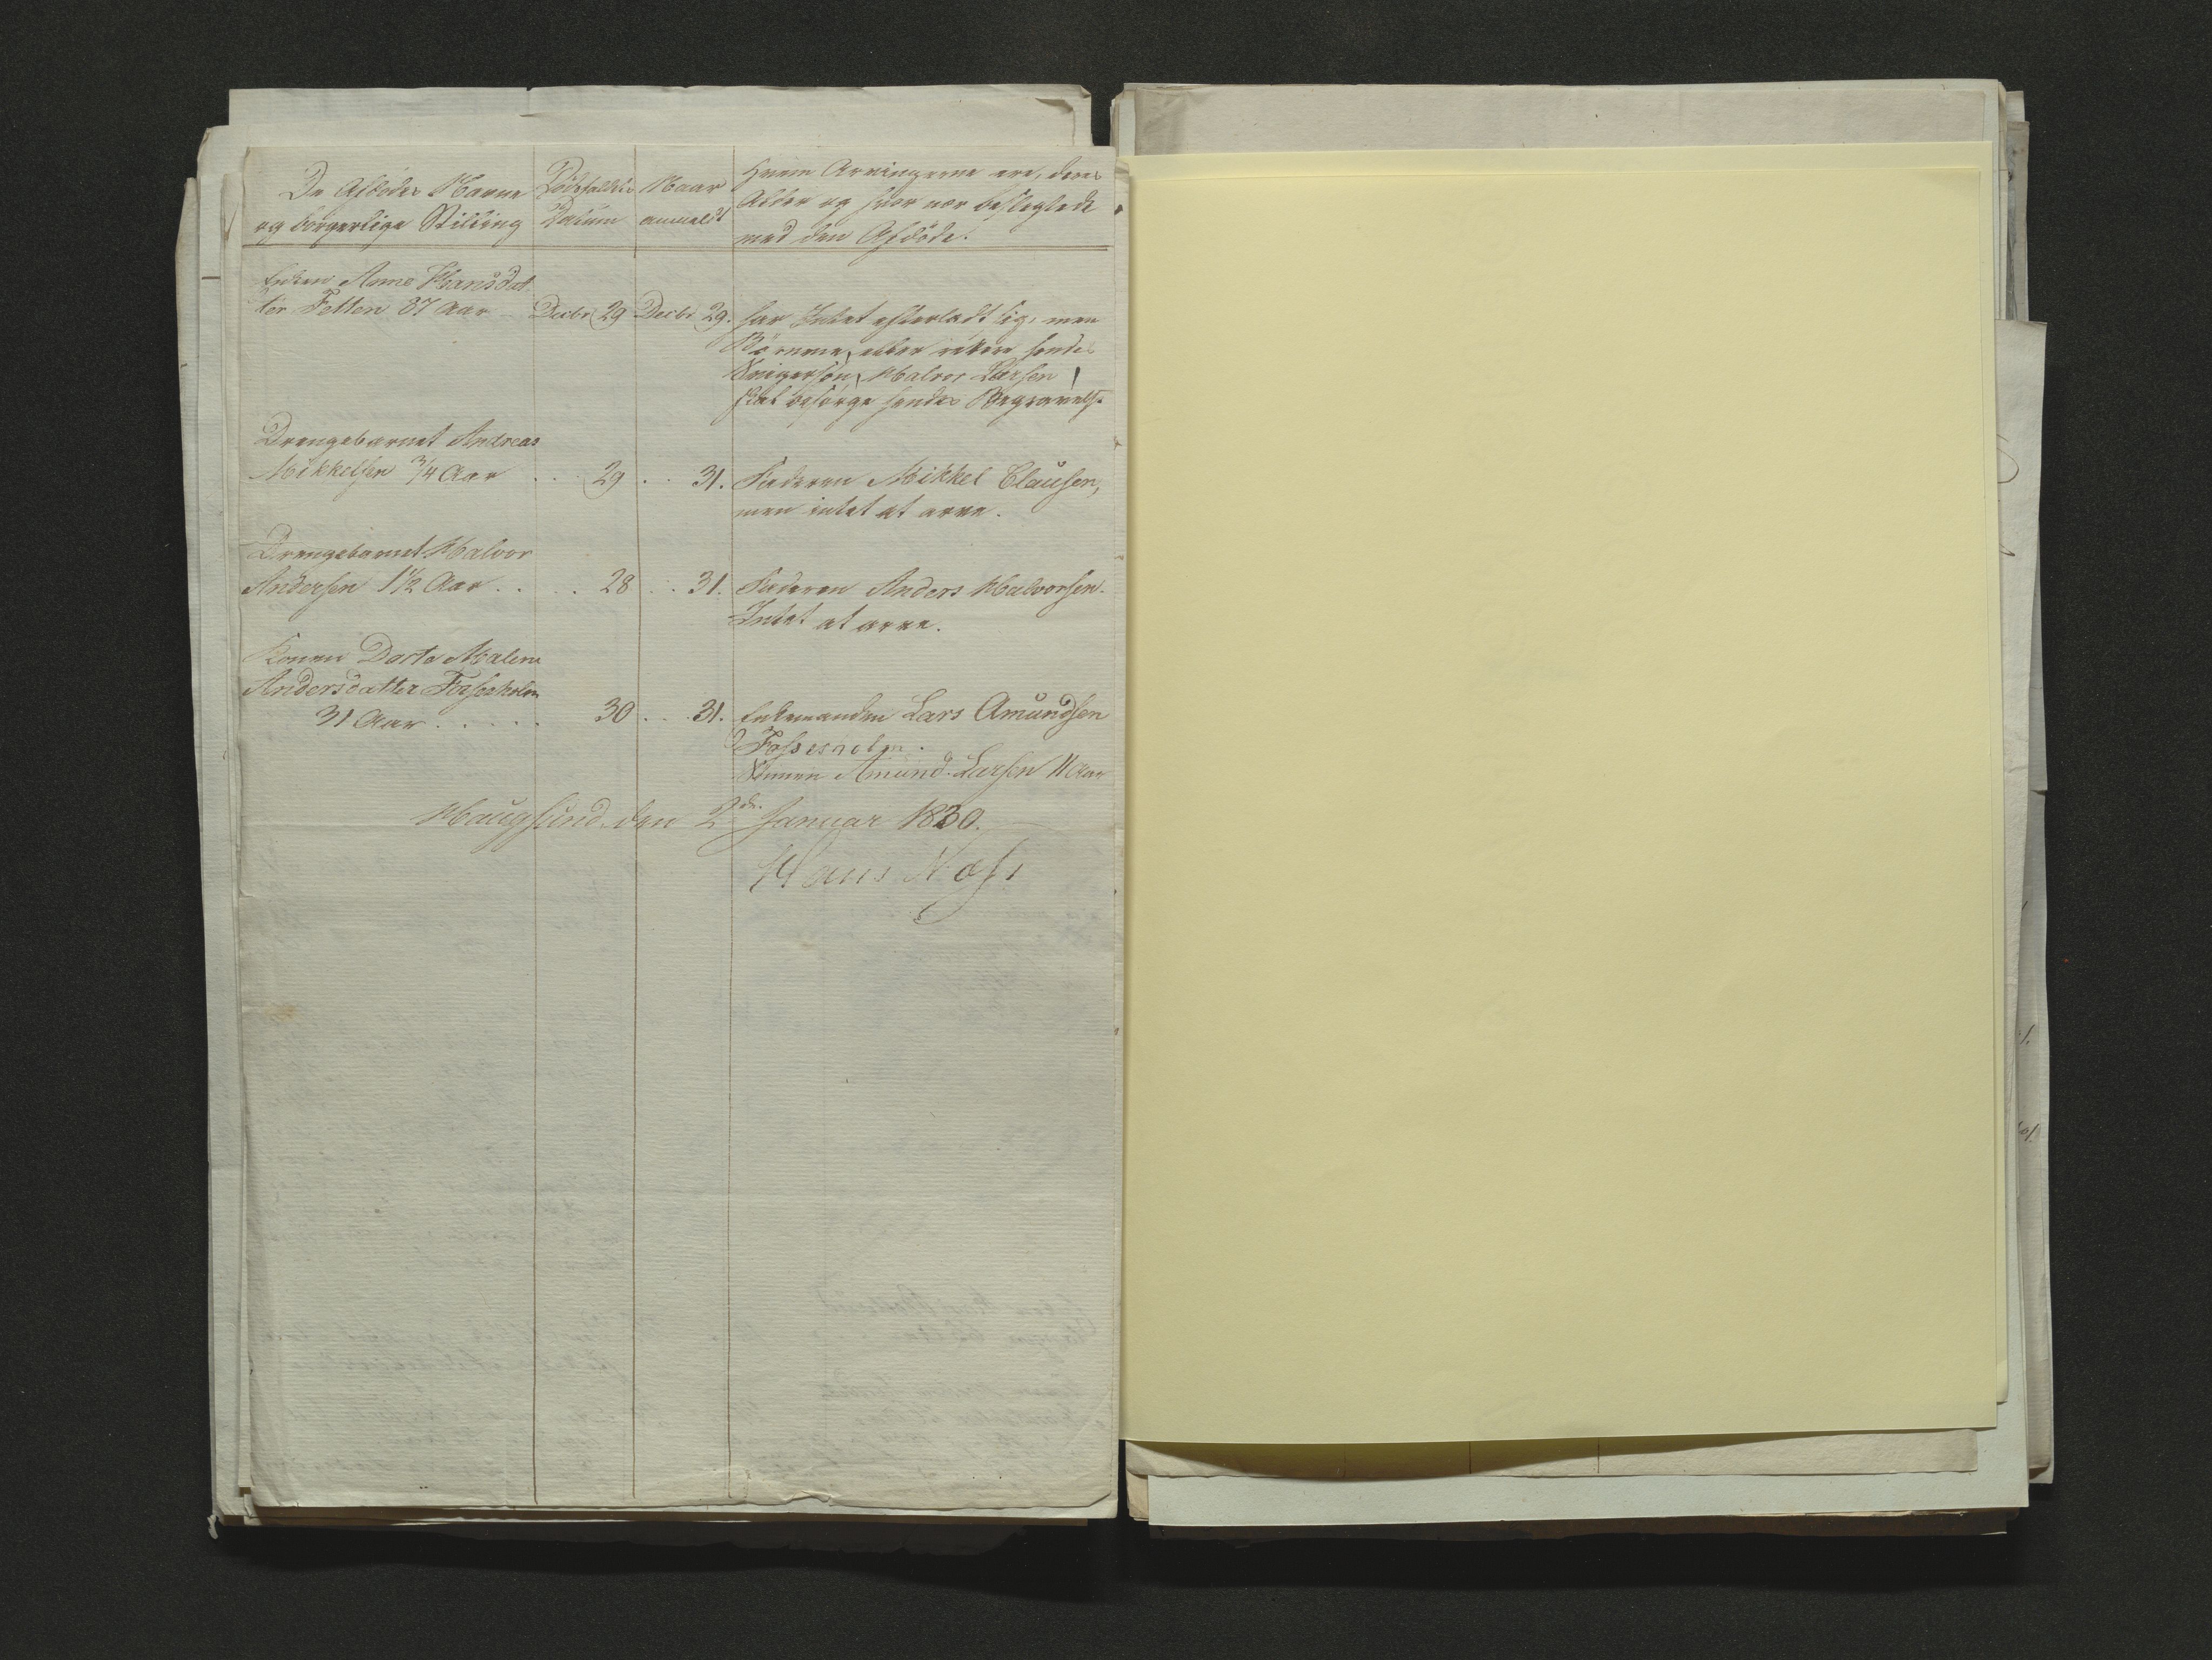 De Afdødes Navne
og borgerlige Stilling
Dødsfaldets
Datum
Naar
anmeldt
Hvem Arvingerne ere, deres
Alder og hvor nær beslegtede
med den Afdøde.
Enken Anne Hansdat
ter Fetten 87 Aar
Decbr 29
Decbr 29.
har Intet efterladt sig, men
Børnene, eller rettere hendes
Svigersøn, Halvor Larsen
skal besørge hendes Begravelse
Drengebarnet Andreas
Mikkelsen 3/4 Aar
29
31.
Faderen Mikkel Clausen,
men intet at arve.
Drengebarnet Halvor
Andersen 1 1/2 Aar . .
28
31.
Faderen Anders Halvorsen.
Intet at arve.
Konen Dorte Malene
Andersdatter Fossesholm
31 Aar . . . . .
30
31.
Enkemanden Lars Amundsen
Fossesholm.
Sønnen Amund Larsen 11 Aar
Haugsund den 2de Januar 1830.
Hans